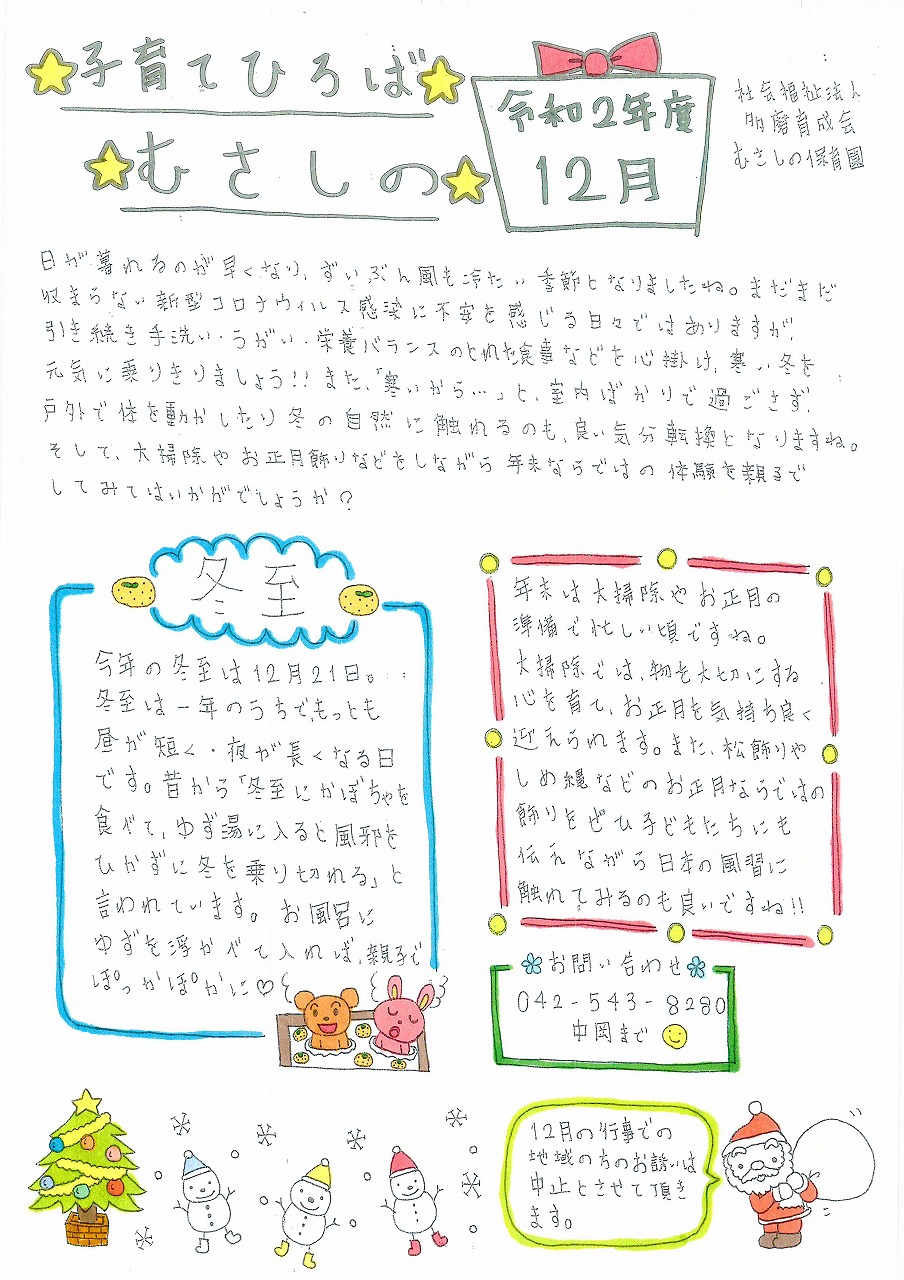 子育てひろば
むさしの
令和2年度
12月
社会福祉法人
多磨育成会
むさしの保育園
日が暮れるのが早くなり、ずいぶん風も冷たい季節となりましたね。まだまだ
収まらない新型コロナウィルス感染に不安を感じる日々ではありますが、
引き続き手洗い・うがい・栄養バランスのとれた食事などを心掛け、寒い冬を
元気に乗りきりましょう!!また、「寒いから…」と、室内ばかりで過ごさず、
戸外で体を動かしたり冬の自然に触れるのも、良い気分転換となりますね。
そして、大掃除やお正月飾りなどをしながら年末ならではの体験を親子で
してみてはいかがでしょうか?
冬至
今年の冬至は12月21日。
冬至は一年のうちで、もっとも
昼が短く・夜が長くなる日
です。昔から「冬至にかぼちゃを
食べて、ゆず湯に入ると風邪を
ひかずに冬を乗り切れる」と
言われています。お風呂に
ゆずを浮かべて入れば、親子で
ぽっかぽかに♡
年末は大掃除やお正月の
準備で忙しい頃ですね。
大掃除では、物を大切にする
心を育て、お正月を気持ち良く
迎えられます。また、松飾りや
しめ縄などのお正月ならではの
飾りをぜひ子どもたちにも
伝えながら日本の風習に
触れてみるのも良いですね!!
お問い合わせ
042-543-8280
中岡まで
12月の行事での
地域の方のお誘いは
中止とさせて頂き
ます。